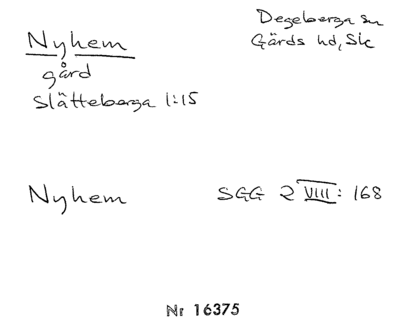 Nyhem
gård
Slätteberga 1:15
Degeberga sn
Gärds hd, Sk
Nyhem
SGG 2 VIII: 168
Nr 16375